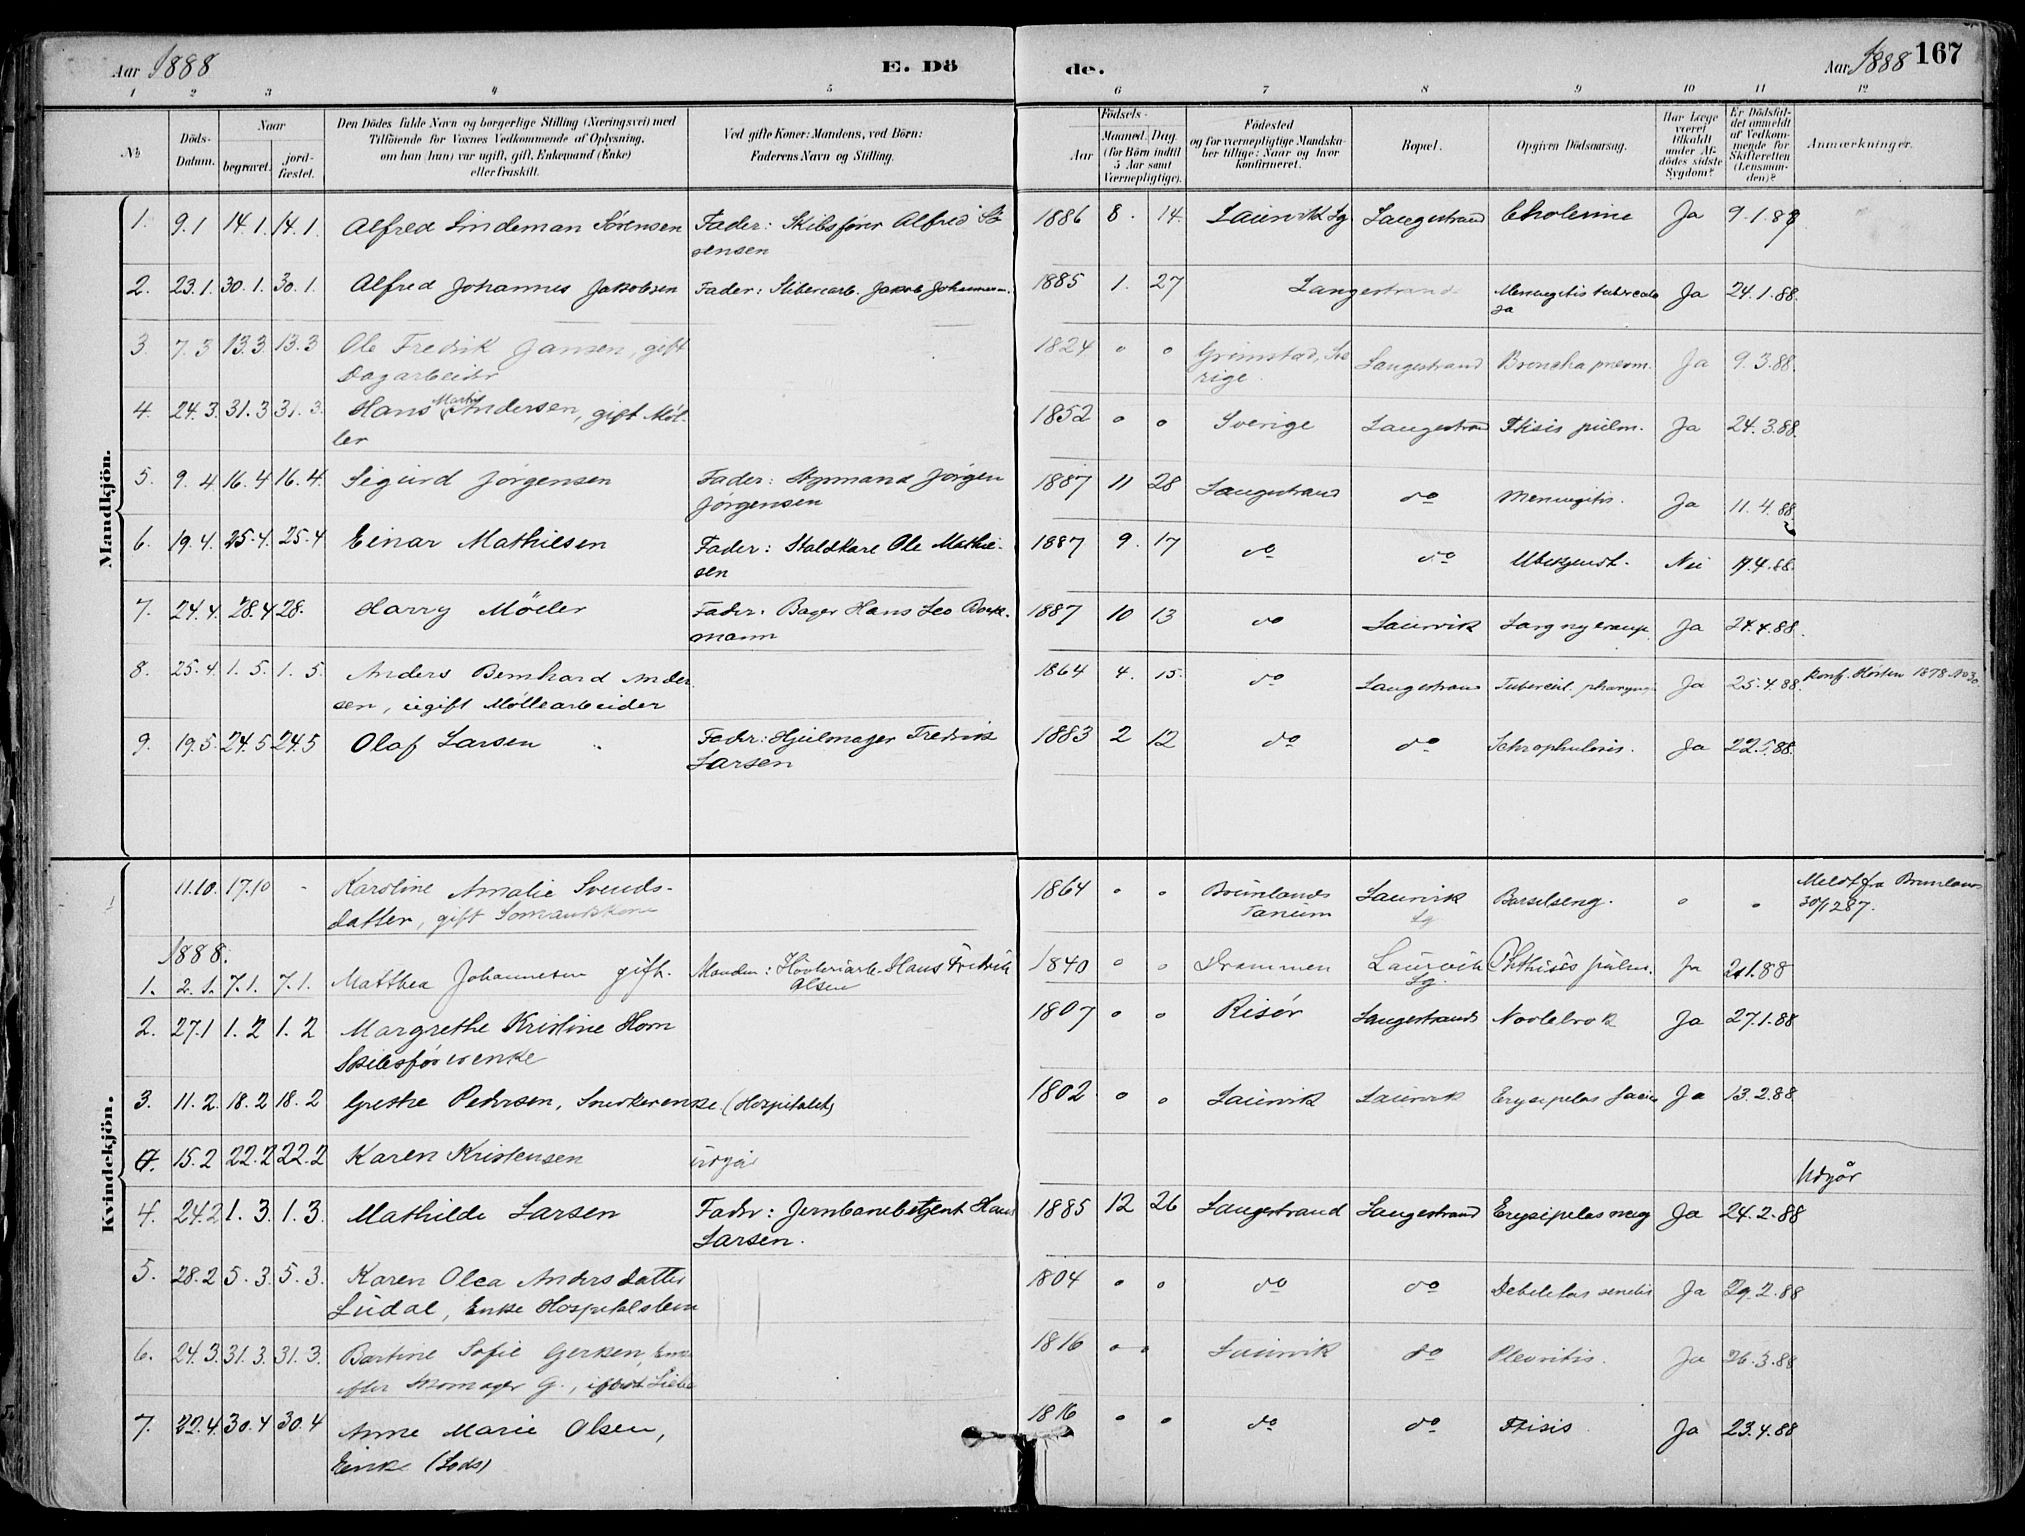 Aar 1888 E. Dö
de. Aar 1888 167
1 2 3 4 5
6 7 8 9 10 11 12
№ Döds-Datum. Naar begravet. jord-fæstet. Den Dödes fulde Navn og borgerlige Stilling (Næringsvei) med Tilföiende for Voxnes Vedkommende af Oplysning, om han (hun) var ugift, gift, Enkemand (Enke) eller fraskilt. Ved gifte Koner: Mandens, ved Börn: Faderens Navn og Stilling.
Födsels- Aar Maaned. Dag. (for Börn indtil 5 Aar samt Værnepligtige). Födested og for værnepligtige Mandskaber tillige: Naar og hvor konfirmeret. Bopæl. Opgiven Dödsaarsag. Har Læge været tilkaldt under Afdödes sidste Sygdom? Er Dödsfaldet anmeldt af Vedkommende for Skifteretten (Lensmanden)? Anmærkninger.
Mandkjön.
1. 9.1 14.1. 14.1. Alfred Lindeman Sörensen Fader: Skibsfører Alfred Sö 1886 8. 14. Laurvik Lg Langestrand Cholerine Ja 9.1.88
rensen
2. 23.1. 30.1. 30.1. Alfred Johannes Jakobsen Fader: Jakob Johannesen. 1885 1. 27 Langestrand Meningitis tuberculo Ja 24.1.88.
sa
3 7.3 13.3 13.3 Ole Fredrik Jansen, gift 1824 o o Grimstad, Sve Langestrand Broncho pneum. Ja 9.3.88.
Dagarbeider rige.
4. 24.3. 31.3 31.3. Hans Martin Andersen, gift Møl- 1852 o o Sverige Langestrand Ftisis pulm. Ja 24.3.88.
ler
5. 9.4 16.4 16.4. Sigurd Jørgensen Fader: Styrmand Jørgen 1887 11 28 Langestrand do Meningitis. Ja 11.4.88
Jørgensen
6. 19.4. 25.4. 25.4 Einar Mathiesen Fader: Staldkarl Ole Mathie- 1887 9. 17 do do Ubekjendt. Nei 19.4.88.
sen
7. 24.4. 28.4 28. Harry Möller Fader: Bager Hans Leo 1887 10 13 do Laurvik Ja 24.4.88.
mann
8. 25.4. 1.5. 1.5. Anders Bernhard Ander 1864 4. 15. do Langestrand Tubercul. Ja 25.4.88. Konf. Horten 1878 No 30.
sen, ugift Möllearbeider
9. 19.5. 24.5 24.5 Olaf Larsen Fader: Hjulmager Fredrik 1883 2 12 do do Schrophulosis. Ja 22.5.88.
Larsen
Kvindekjön.
11.10. 17.10 - Karoline Amalie Svends- 1864 o o Brunlands Laurvik Barselseng. o o Meldt fra Brunlanes
datter, gift Sømandskone Tanum Lg. 30/12 87.
1888.
1. 2.1. 7.1. 7.1. Matthea Johannesen gift. Manden: Høvleriarb. Hans Fredrik 1840 o o Drammen Laurvik Phthisis pulm. Ja 2.1.88
Olsen Lg.
2. 27.1 1.2 1.2 Margrethe Kristine Horn 1807 o o Risör Langestrand Ja 27.1.88
Skibsførerenke
3. 11.2. 18.2 18.2 Grethe Pedersen, Snedkerenke (Hospitalet) 1802 o o Laurvik Laurvik Erysipelas faciei Ja 13.2.88
4. 15.2 22.2 22.2 Karen Kristensen udgår Udgår
4. 24.2 1.3. 1.3. Mathilde Larsen Fader: Jernbanebetjent Hans 1885 12 26 Langestrand Langestrand Erysipelas Ja 24.2.88
Larsen.
5. 28.2 5.3. 5.3. Karen Olea Andersdatter 1804 o o do do Debilitas senilis Ja 29.2.88
Ludal, Enke Hospitalslem
6. 24.3. 31.3. 31.3. Bartine Sofie Gerken, Enke 1816 o o Laurvik do Pleuritis. Ja 26.3.88
efter Skomager G.,
7. 22.4. 30.4 30.4 Anne Marie Olsen, 1816 o o do do Ftisis Ja 23.4.88
Enke (Lods)